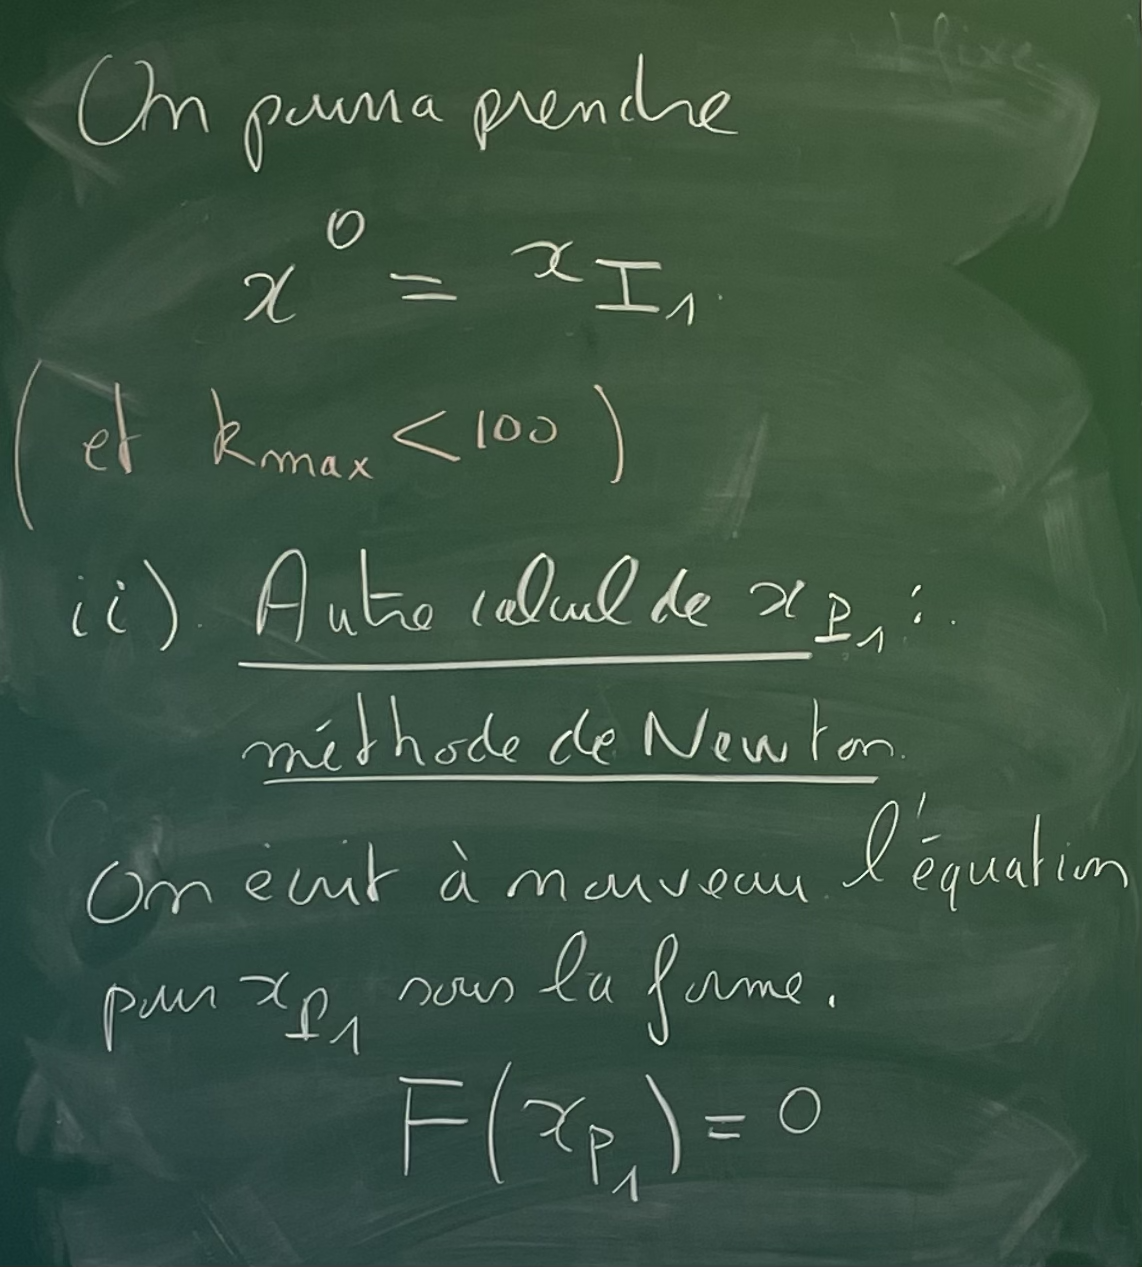 On pourra prendre
x⁰ = x_I₁.
(et k_max < 100)
ii). Autre calcul de x_P₁ :.
méthode de Newton.
On écrit à nouveau l'équation
pour x_P₁ sous la forme.
F(x_P₁) = 0